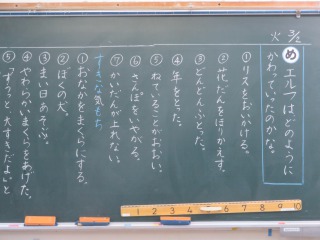 3/2
火
め エルフはどのように
かわっていったのかな。
①リスをおいかける。
②花だんをほりかえす。
③どんどんふとった。
④年をとった。
⑤ねていることがおおい。
⑥さんぽをいやがる。
⑦かいだんが上れない。
すきな気もち
①おなかをまくらにする。
②ぼくの犬。
③まい日あそぶ。
④やわらかいまくらをあげた。
⑤「ずうっと、大すきだよ。」と
1 2 3 4 5 6 7 8 9 10